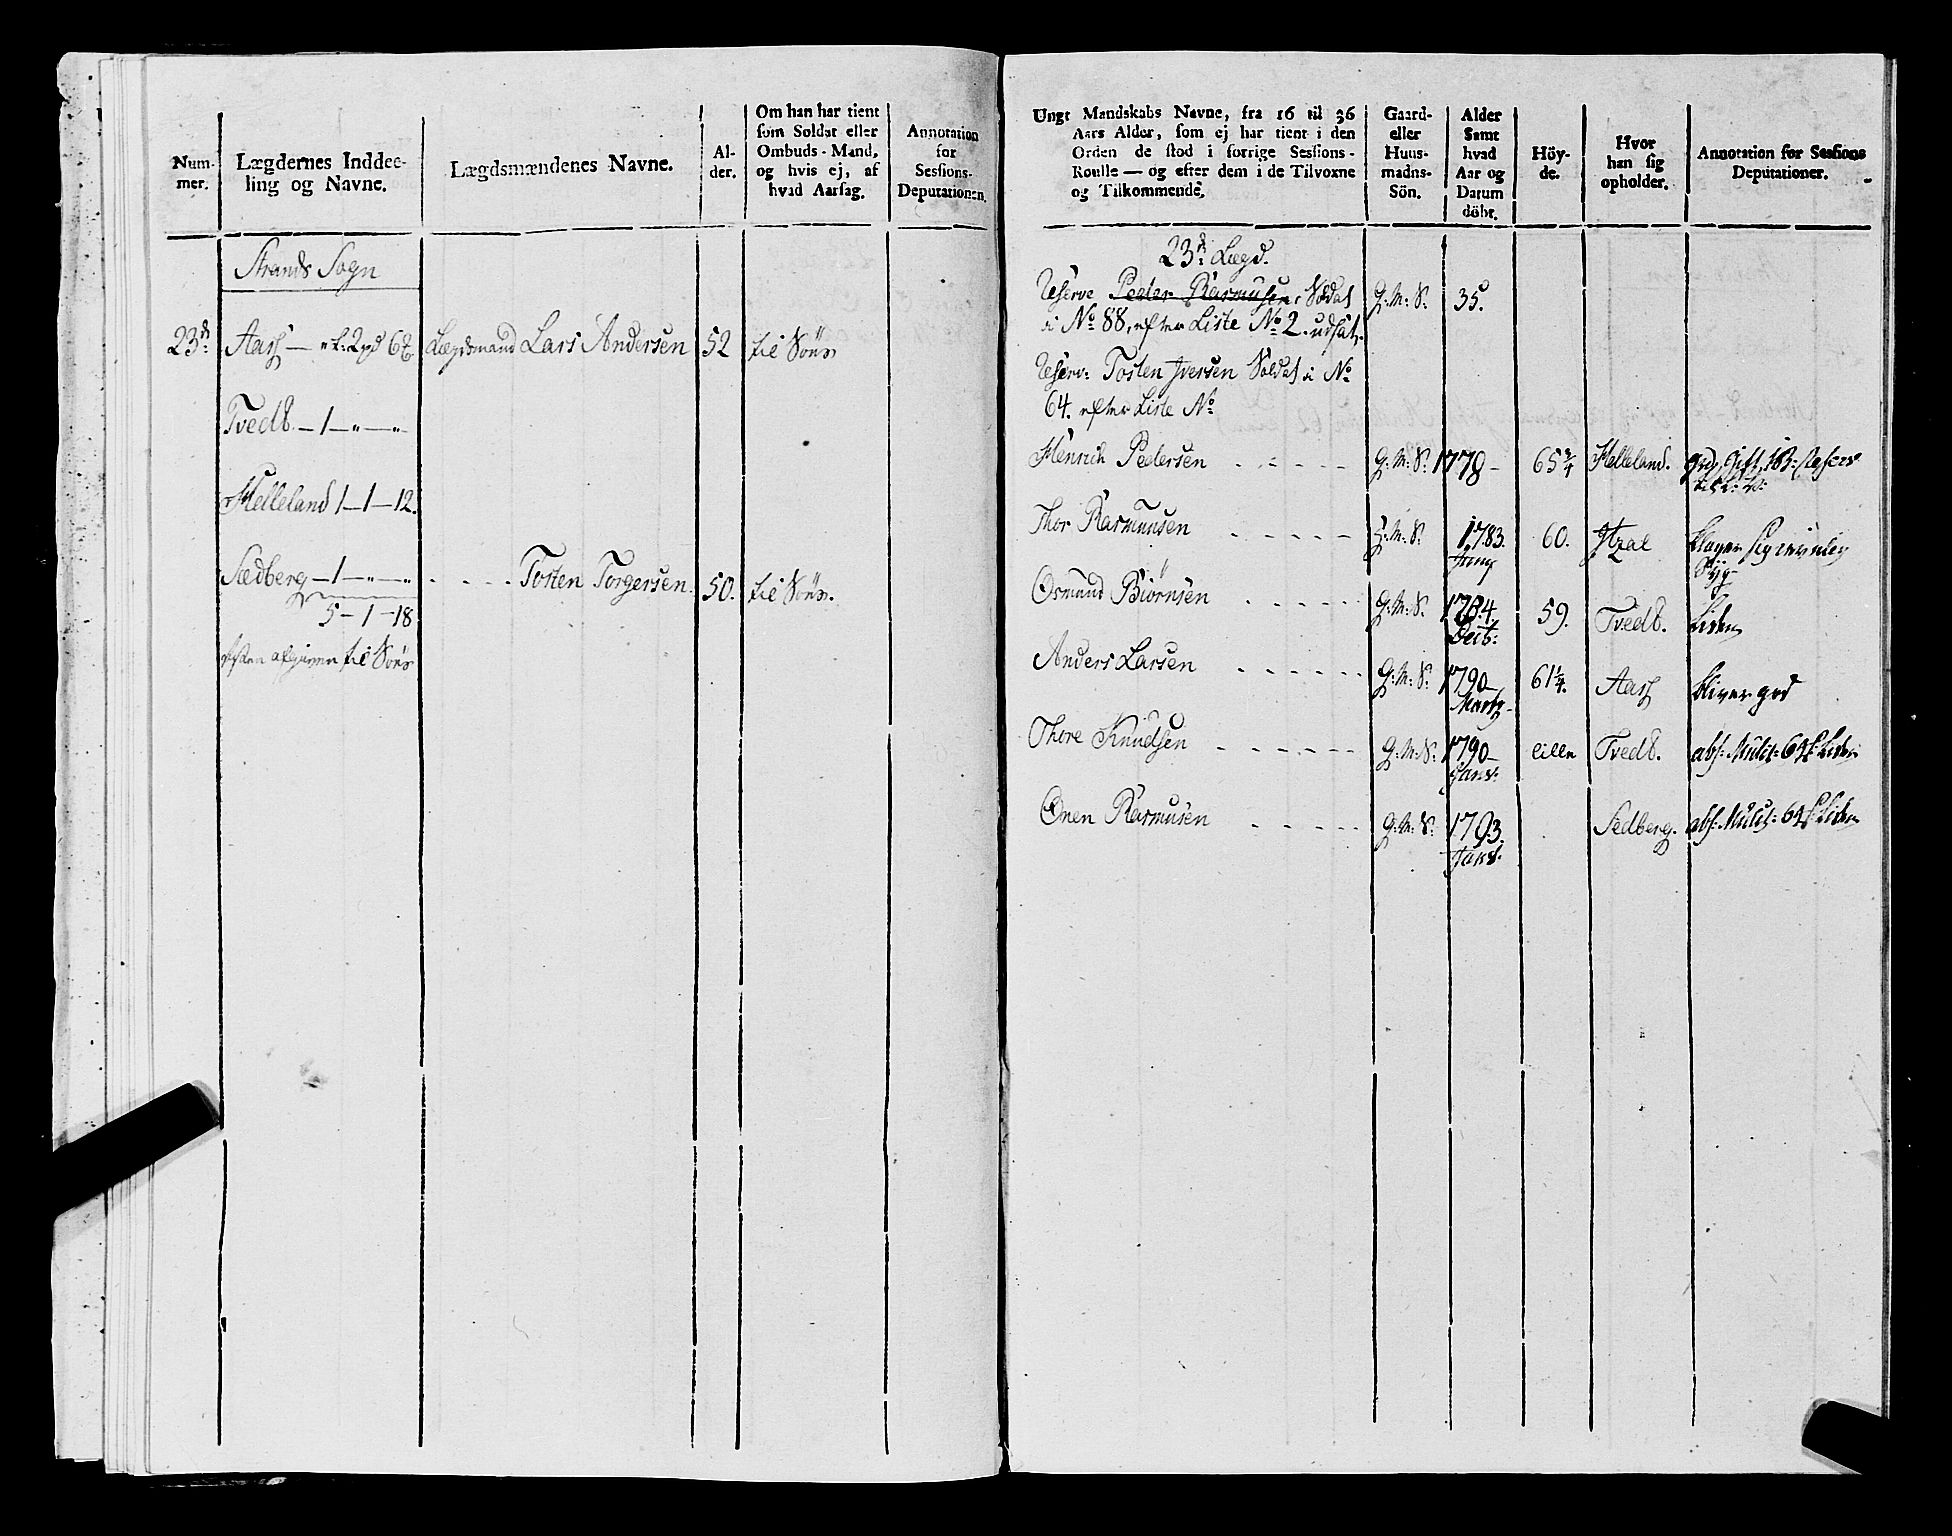 Num-
mer.
Lægdernes Inddee-
ling og Navne.
Lægdsmændenes Navne.
Al-
der.
Om han har tient
som Soldat eller
Ombuds-Mand,
og hvis ej, af
hvad Aarsag.
Annotation
for
Sessions-
Deputationen.
Strands Sogn
23de Aass — 2 pd 6
Lægdsmand Lars Andersen 52 til Søes
Tvedt — 1 — " — "
Helleland 1 — 1 — 12.
Sædberg — 1 — " — " - - - - Tosten Torgersen. 50. til Søes.
5 — 1 — 18
til Søes
Ungt Mandskabs Navne, fra 16 til 36
Aars Alder, som ej har tient i den
Orden de stod i forrige Sessions-
Roulle — og efter dem i de Tilvoxne
og Tilkommende.
Gaard-
eller
Huus-
mands-
Sön.
Alder
Samt
hvad
Aar og
Datum
döbt.
Höy-
de.
Hvor
han sig
opholder.
Annotation for Sessions
Deputationer.
23de Lægd.
Reserve Peder Rasmusen Soldat G: M: S: 35.
i No 88, efter Liste No 2. udsat.
Reserv: Tosten Iversen Soldat i No
64. efter Liste No
Henrich Pedersen - - - - G: M: S: 1778 - 65 3/4 Helleland. god, Gift,
Thor Rasmussen - - - - - G: M: S. 1783. 60. klager sig
Juny
Osmund Biörnsen - - - - - G: M: S. 1784. 59. Tvedt. liden
Decb:
Anders Larsen - - - - - - G: M: S: 1790 - 61 1/4. Aass bliver god
Martz -
Thore Knudsen - - - - - - G: M: S: 1790 - lille Tvedt. abs: Mulct: 64 s liden
Janv:
Onen Rasmusen - - - - - G: M: S: 1793. Sedberg. abs: Mulct: 64 s liden
Janv.